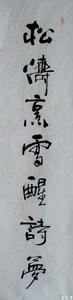 松濤烹雪醒詩夢